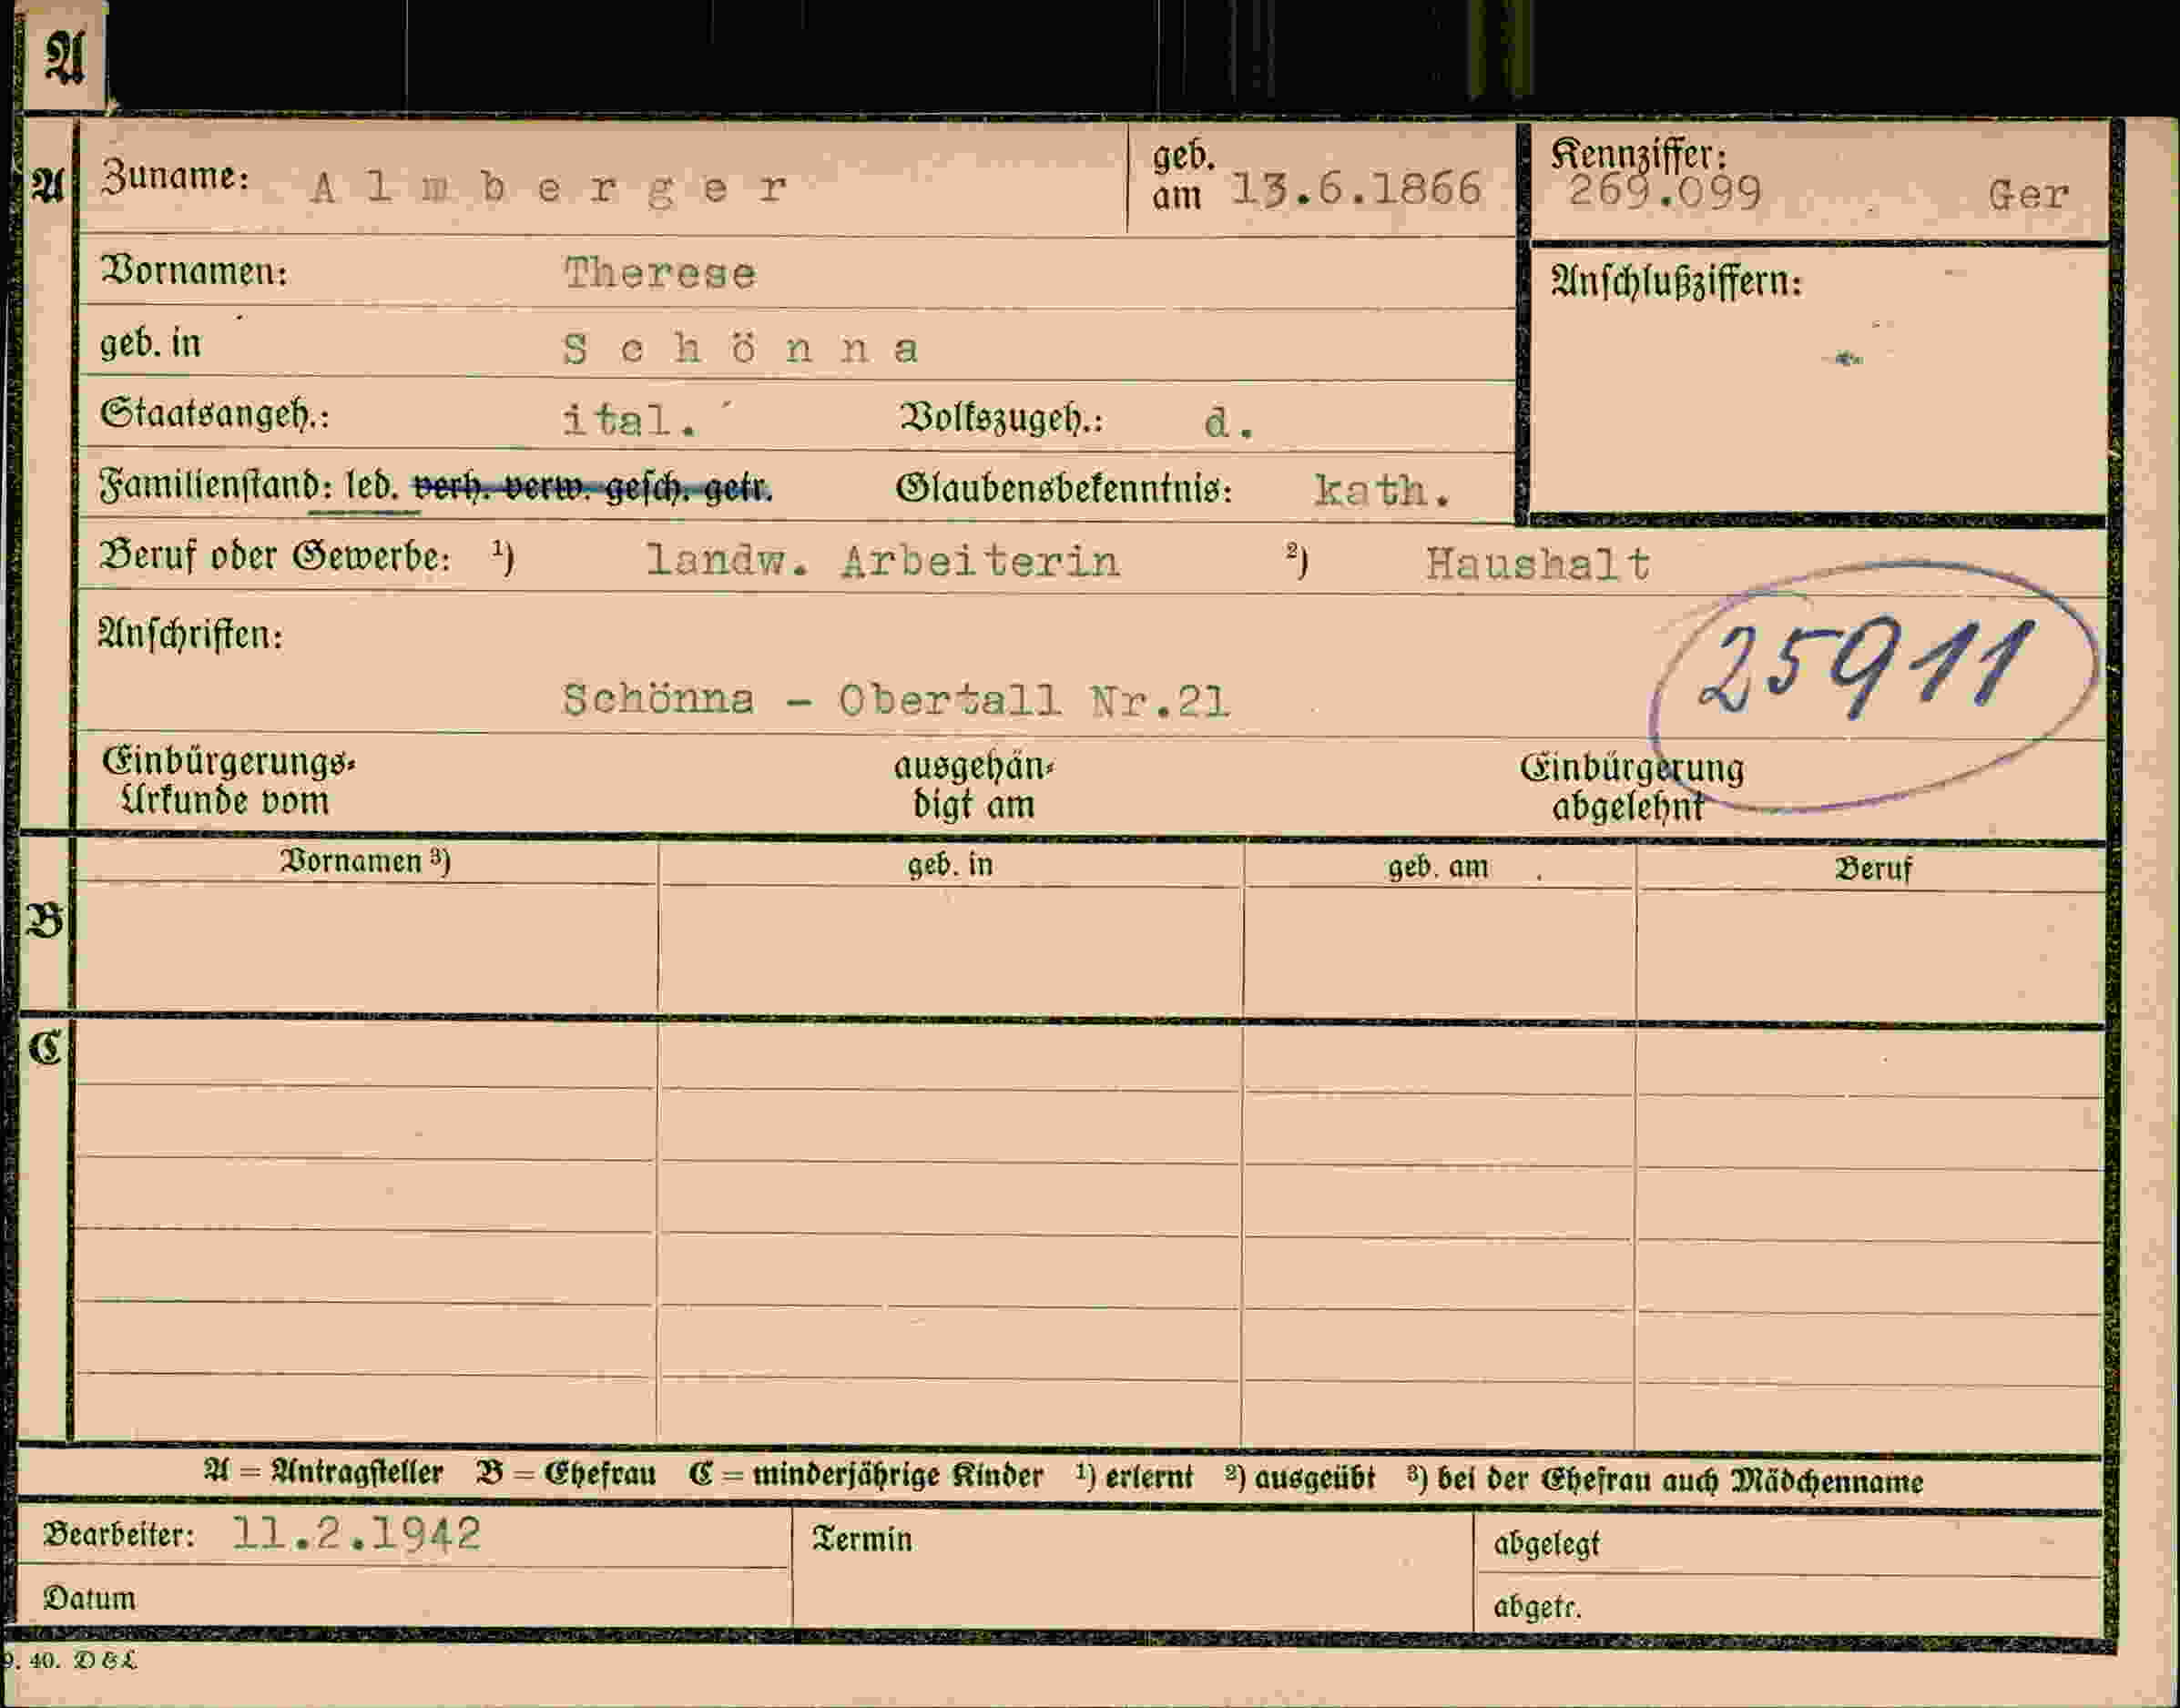 A
A
Zuname: Almberger geb. am 13.6.1866 Kennziffer: 269.099 Ger
Vornamen: Therese Anschlußziffern:
geb. in Schönna
Staatsangeh.: ital. Volkszugeh.: d.
Familienstand: led. verh. verw. gesch. getr. Glaubensbekenntnis: kath.
Beruf oder Gewerbe: 1) landw. Arbeiterin 2) Haushalt
Anschriften:
25911
Schönna - Obertall Nr.21
Einbürgerungs- ausgehän- Einbürgerung
Urkunde vom digt am abgelehnt
Vornamen 3) geb. in geb. am Beruf
B
C
A = Antragsteller B = Ehefrau C = minderjährige Kinder 1) erlernt 2) ausgeübt 3) bei der Ehefrau auch Mädchenname
Bearbeiter: 11.2.1942 Termin abgelegt
Datum abgetr.
9. 40. D & L